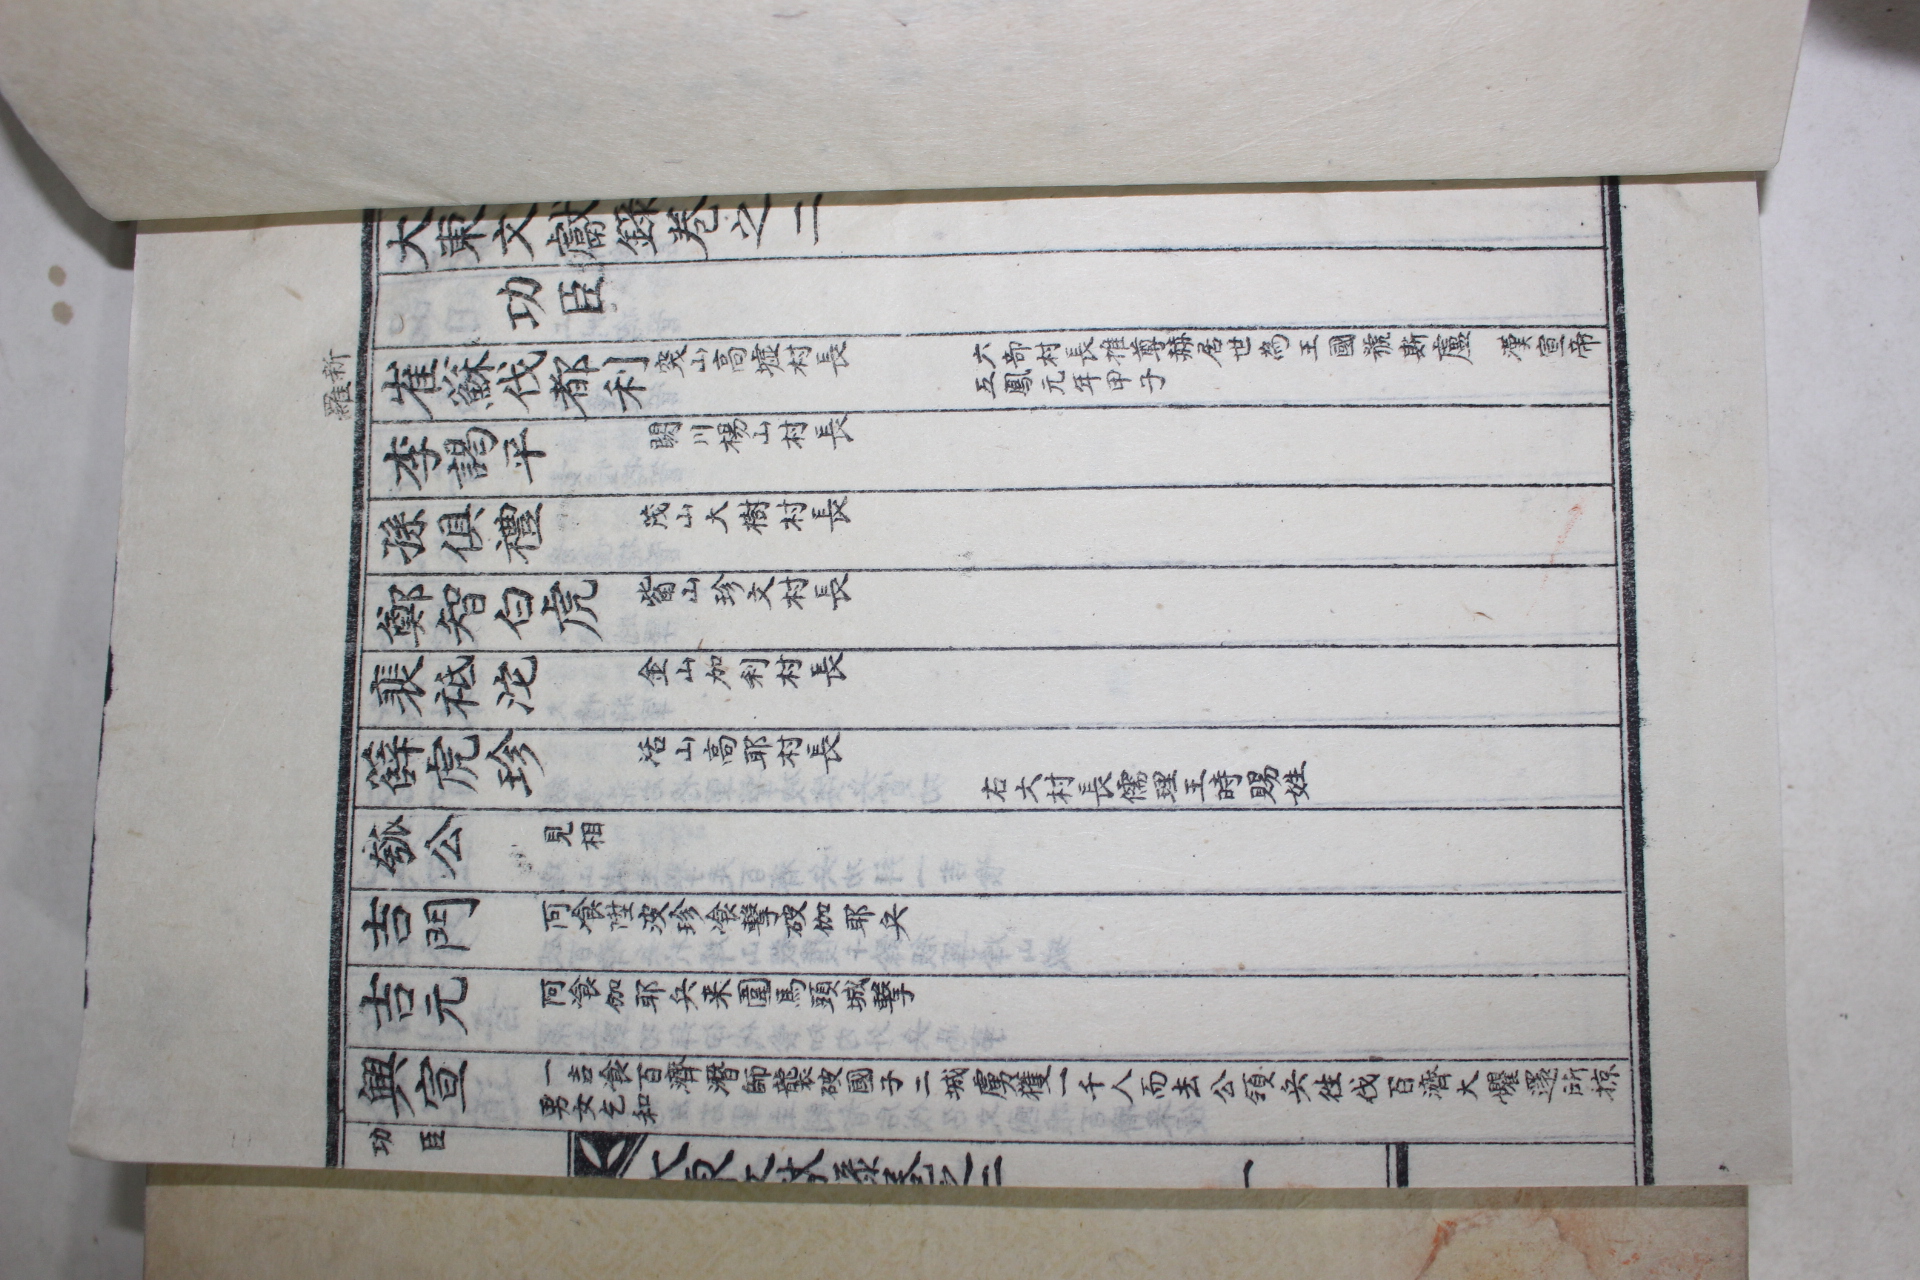 大東文獻錄卷之二
功臣
新羅
崔蘇伐都利 突山高墟村長 六部村長推尊赫居世為王國號斯盧 漢宣帝
五鳳元年甲子
李謁平 閼川楊山村長
孫俱禮 茂山大樹村長
鄭智白虎 觜山珍支村長
裵祗沱 金山加利村長
薛虎珍 活山高耶村長
右六村長儒理王時賜姓
瓠公 見相
吉門 阿飡陞波珍飡擊破伽耶兵
吉元 阿飡伽耶兵来圍馬頭城擊
興宣 一吉飡百濟潛師襲破國子二城虜獲一千人而去公領兵往伐百濟大懼還所掠
男女乞和
功臣
大東文獻錄卷之二 一